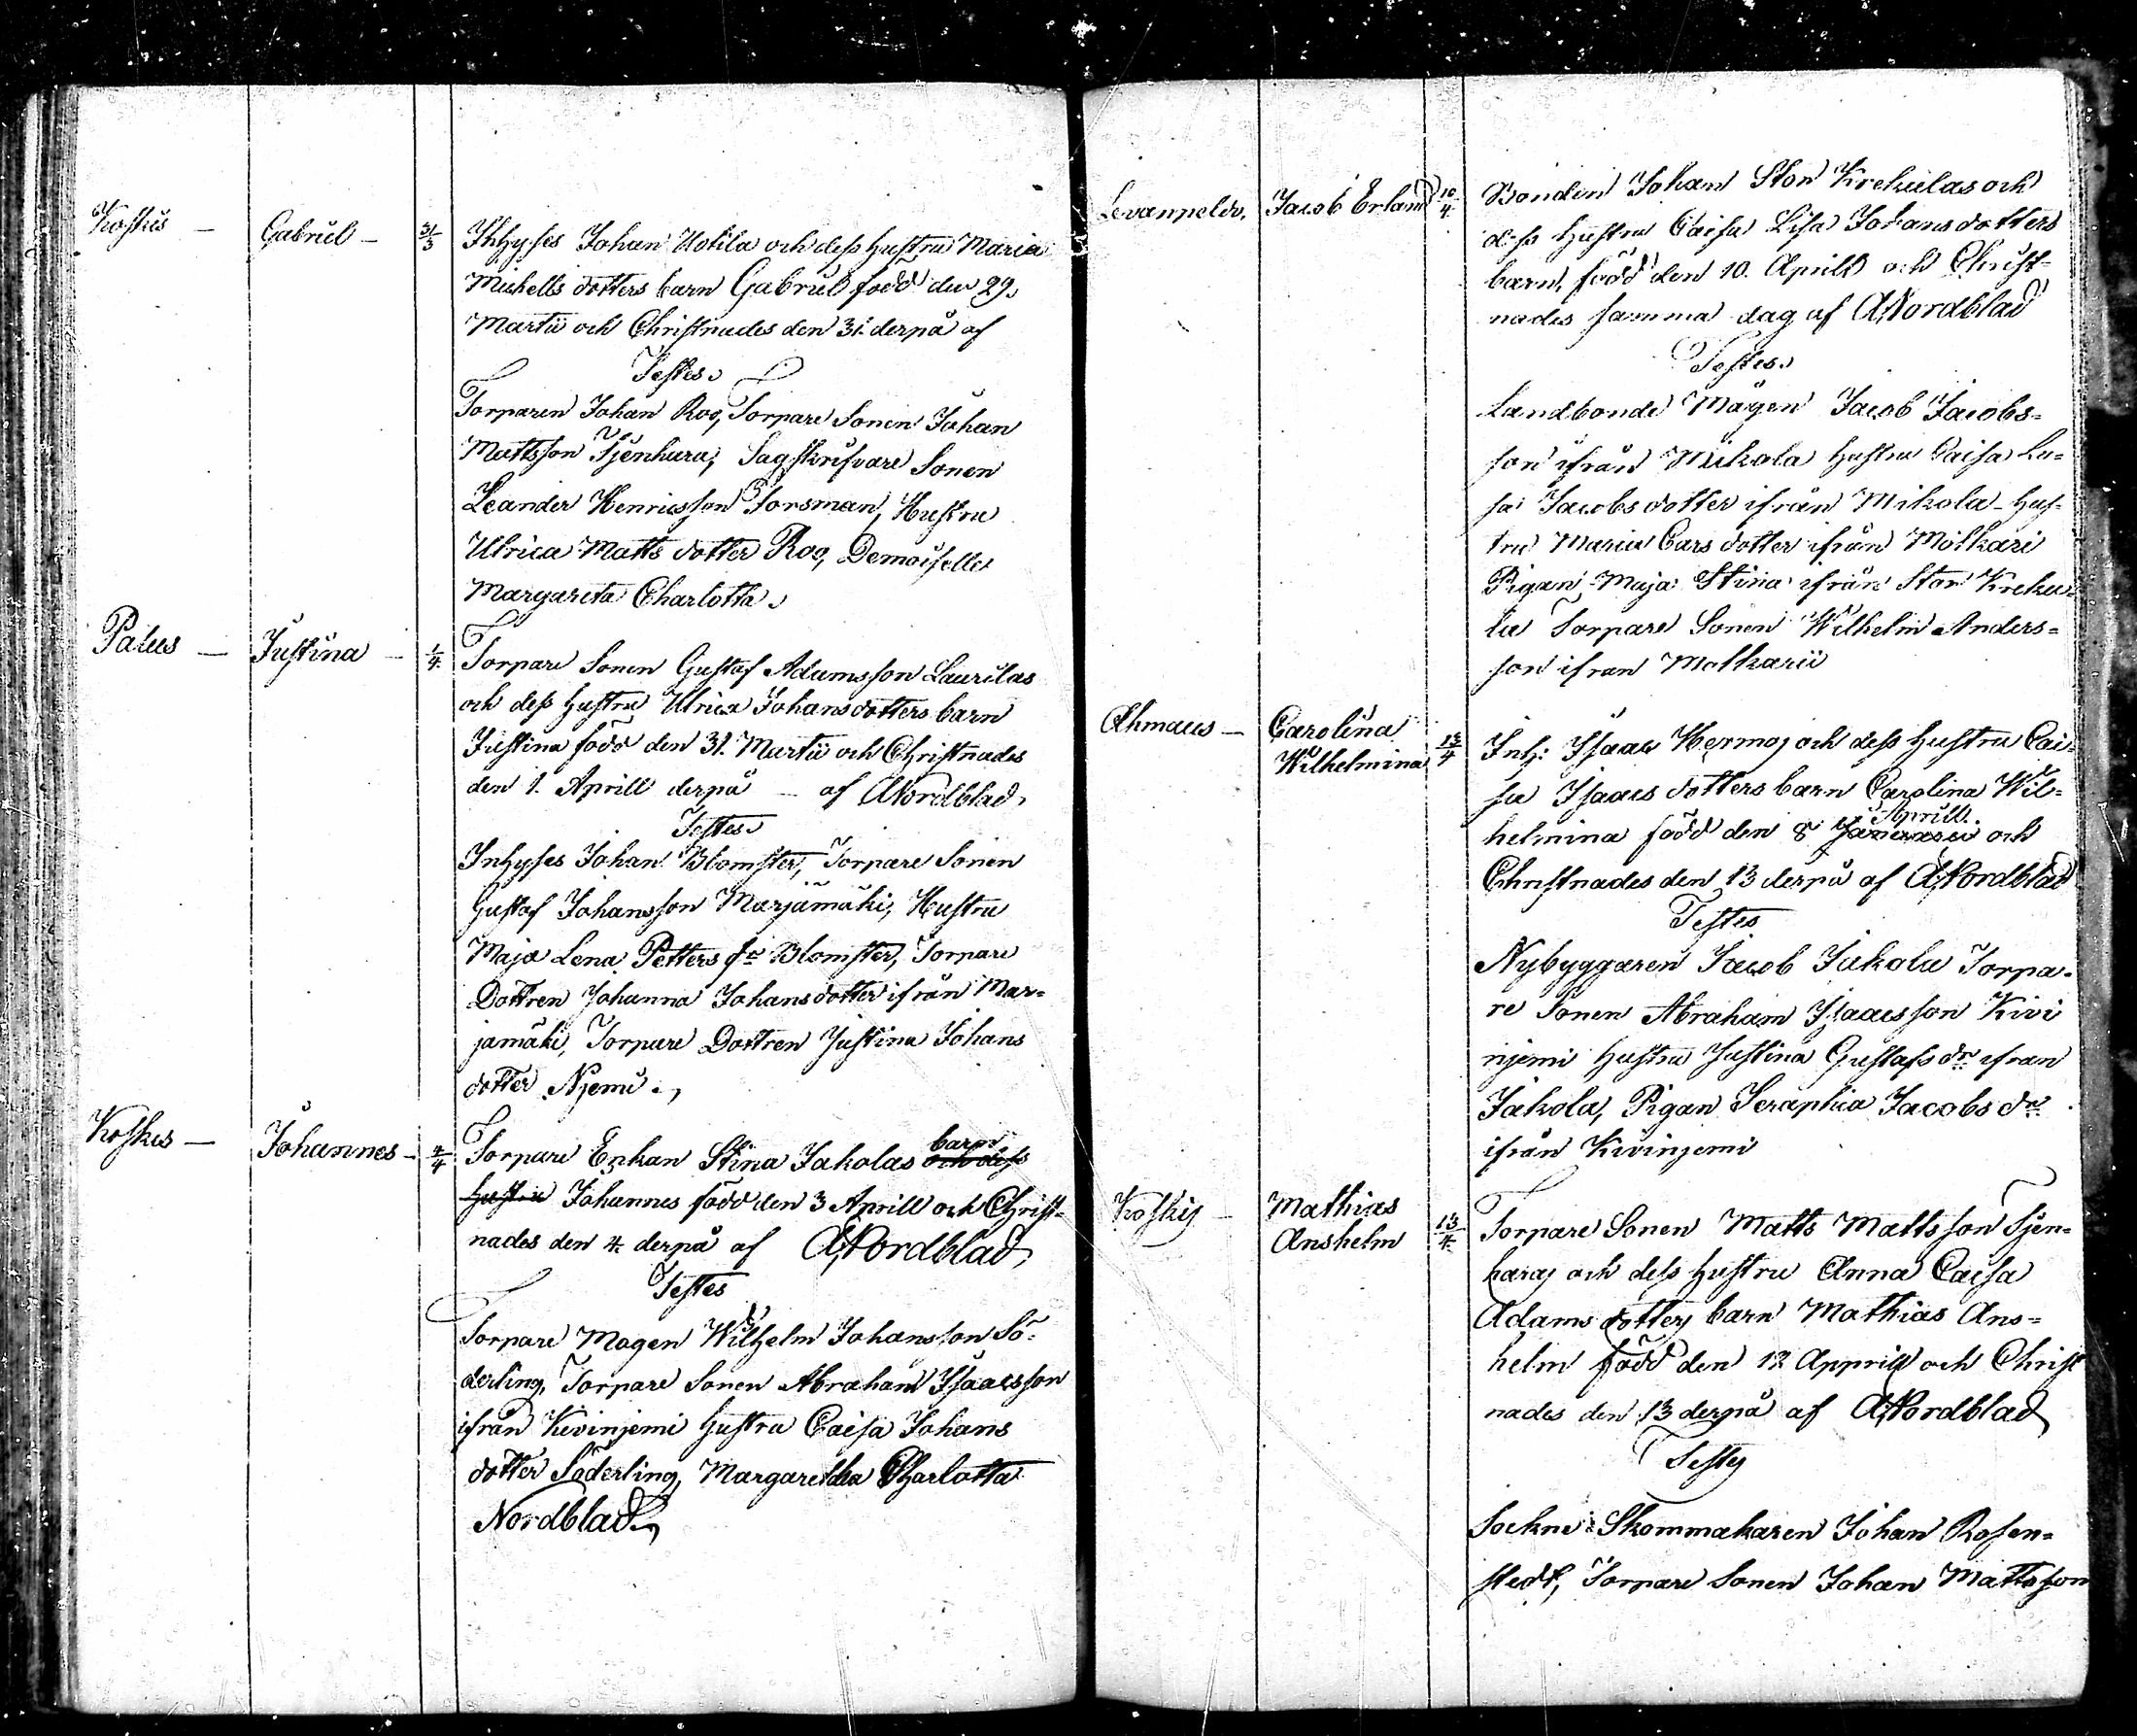 Koskis — Gabriel — 31/3
Inhyses Johan Uotila och dess hustru Maria
Michells dotters barn Gabriel född den 29.
Martii och Christnades den 31. derpå af
Testes.
Torparen Johan Roo, Torpare Sonen Johan
Mattsson Tjenhura, Sagskrifvare Sonen
Leander Henricsson Forsman, Hustru
Ulrica Matts dotter Roo, Demoiselle
Margareta Charlotta.
Palus — Justina — 1/4
Torpare Sonen Gustaf Adamsson Laurilas
och dess hustru Ulrica Johansdotters barn
Justina född den 31. Martii och Christnades
den 1. Aprill derpå — af A Nordblad,
Testes.
Inhyses Johan Blomster, Torpare Sonen
Gustaf Johansson Marjamäki, Hustru
Maja Lena Petters dr Blomster, Torpare
Dottren Johanna Johansdotter ifrån Mar=
jamäki, Torpare Dottren Justina Johans
dotter Njemi.
Koskis — Johannes — 4/4
Torpare Enkan Stina Jakolas och dess barn
hustru Johannes född den 3 Aprill och Christ=
nades den 4. derpå af A Nordblad,
Testes
Torpare Magen Wilhelm Johansson Sö=
derling, Torpare Sonen Abraham Isaacsson
ifrån Kivinjemi hustru Caisa Johans
dotter Söderling, Margaretha Charlotta
Nordblad.
Levanpeldo, Jacob Erland 10/4
Bonden Johan Stor Krekulas och
dess hustru Caisa Lisa Johansdotters
barn, född den 10. Aprill och Christ=
nades samma dag af A Nordblad
Testes.
Landbonde Mågen Jacob Jacobs=
son ifrån Mikola hustru Caisa Lu=
sa Jacobsdotter ifrån Mikola hus=
tru Maria Carsdotter ifrån Molkari
Pigan Maja Stina ifrån Stor Kreku=
la Torpare Sonen Wilhelm Anders=
son ifran Molkarii
Ahmaus — Carolina
Wilhelmina 13/4
Inh: Isaac Hermoj och dess hustru Cai=
sa Isaacs dotters barn Carolina Wil=
Aprill.
helmina född den 8 Januarii och
Christnades den 13 derpå af A Nordblad
Testes
Nybyggaren Jacob Jakola Torpa=
re Sonen Abraham Isaacsson Kivi
njemi hustru Justina Gustafs dr ifran
Jakola, Pigan Seraphia Jacobs dr
ifrån Kivinjemi
Koskis — Mathias
Anshelm 13/4
Torpare Sonen Matts Mattsson Tjen=
haraj och dess hustru Anna Caisa
Adams dotters barn Mathias Ans=
helm född den 12 Apprill och Christ
nades den 13 derpå af A Nordblad
Testes
Sockne Skommakaren Johan Rosen=
stedt, Torpare Sonen Johan Mattsson